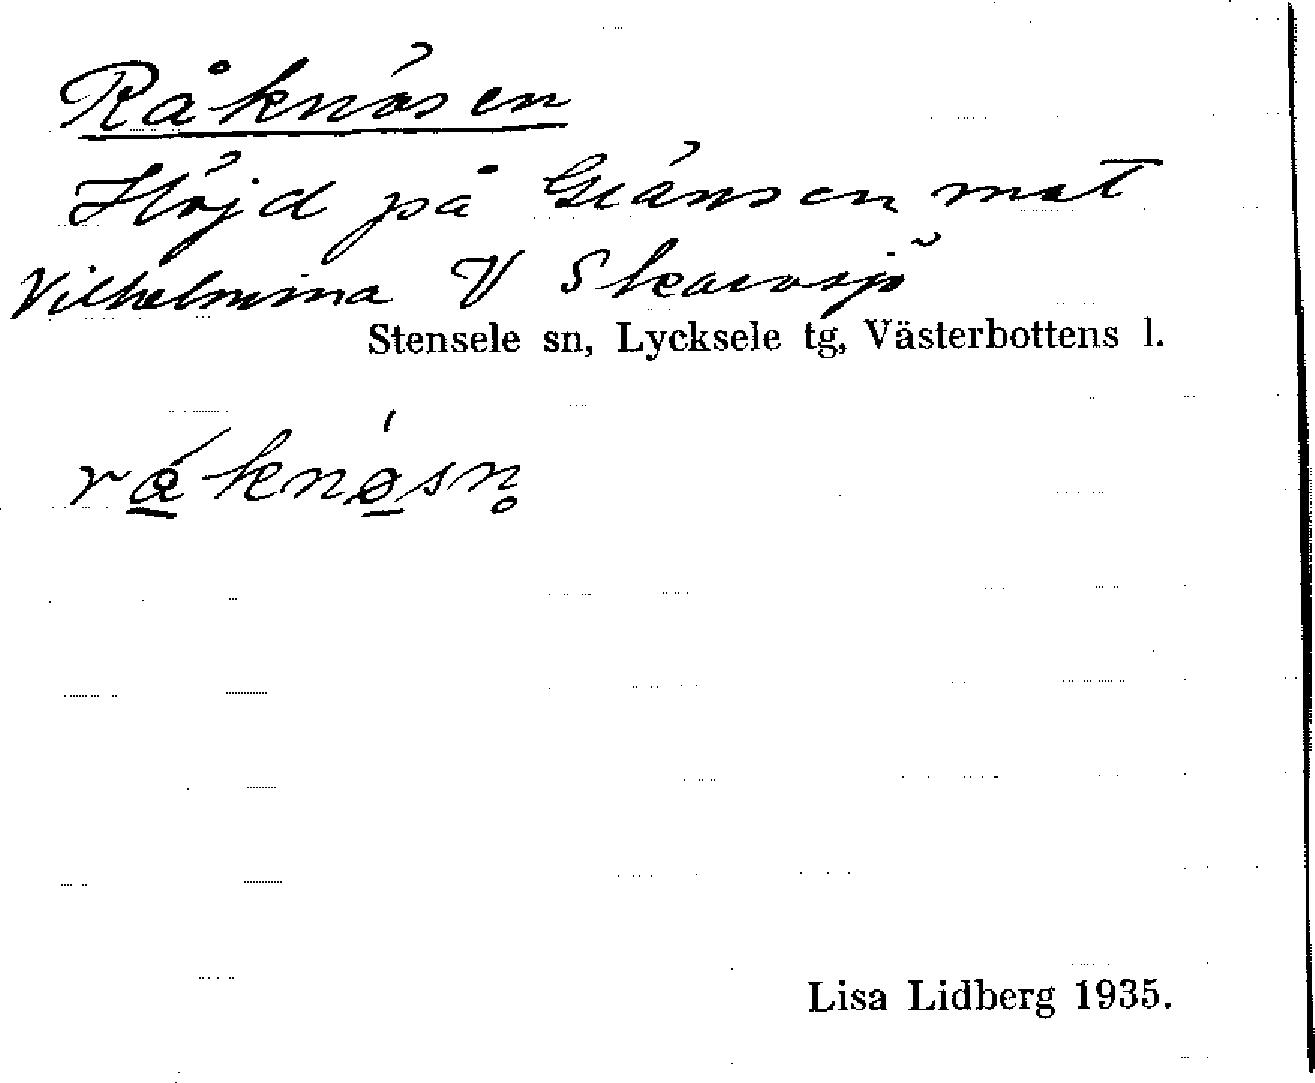 Råknösen
Höjd på Gränsen mot
Vilhelmina V Skarvsjö
Stensele sn, Lycksele tg, Västerbottens l.
Lisa Lidberg 1935.